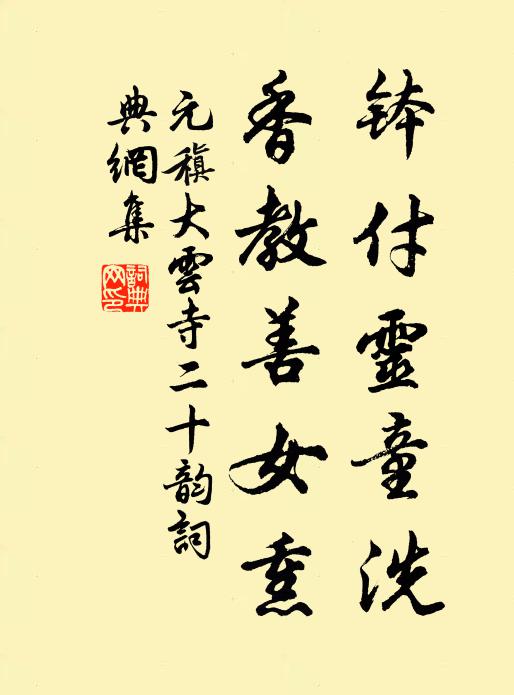 鉢付靈童洗
香教善女熏
元稹大雲寺二十韵詞
典網集
詞典網印